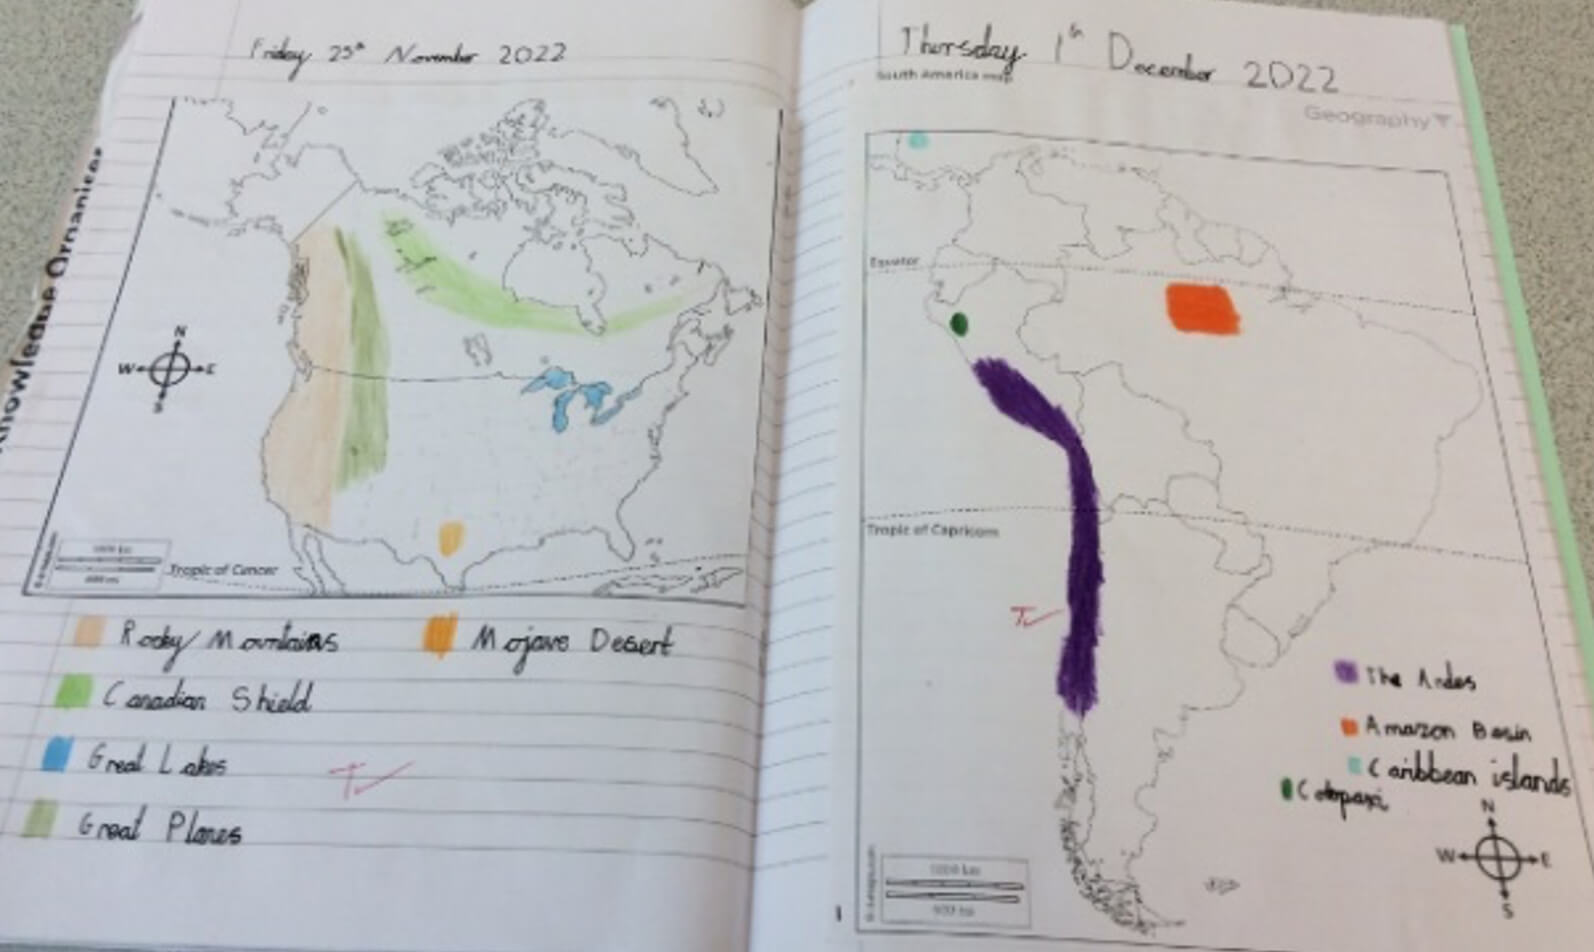 Knowledge Organiser
Friday 25th November 2022
N
W E
S
Tropic of Cancer
Rocky Mountains
Mojave Desert
Canadian Shield
Great Lakes
T
Great Planes
Thursday 1th December 2022
South America map
Geography
Equator
Tropic of Capricorn
T
The Andes
Amazon Basin
Caribbean islands
Cotopaxi
N
W E
S
1000 km